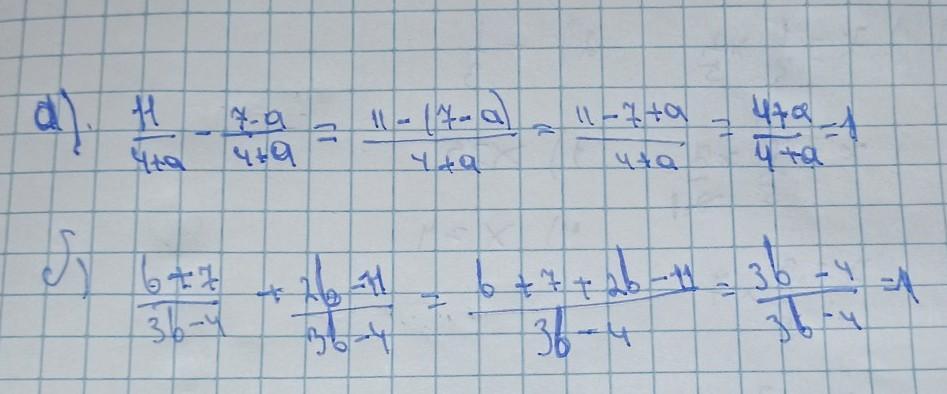 а). 11/(4+a) - (7-a)/(4+a) = (11-(7-a))/(4+a) = (11-7+a)/(4+a) = (4+a)/(4+a) = 1
б) (b+7)/(3b-4) + (2b-11)/(3b-4) = (b+7+2b-11)/(3b-4) = (3b-4)/(3b-4) = 1